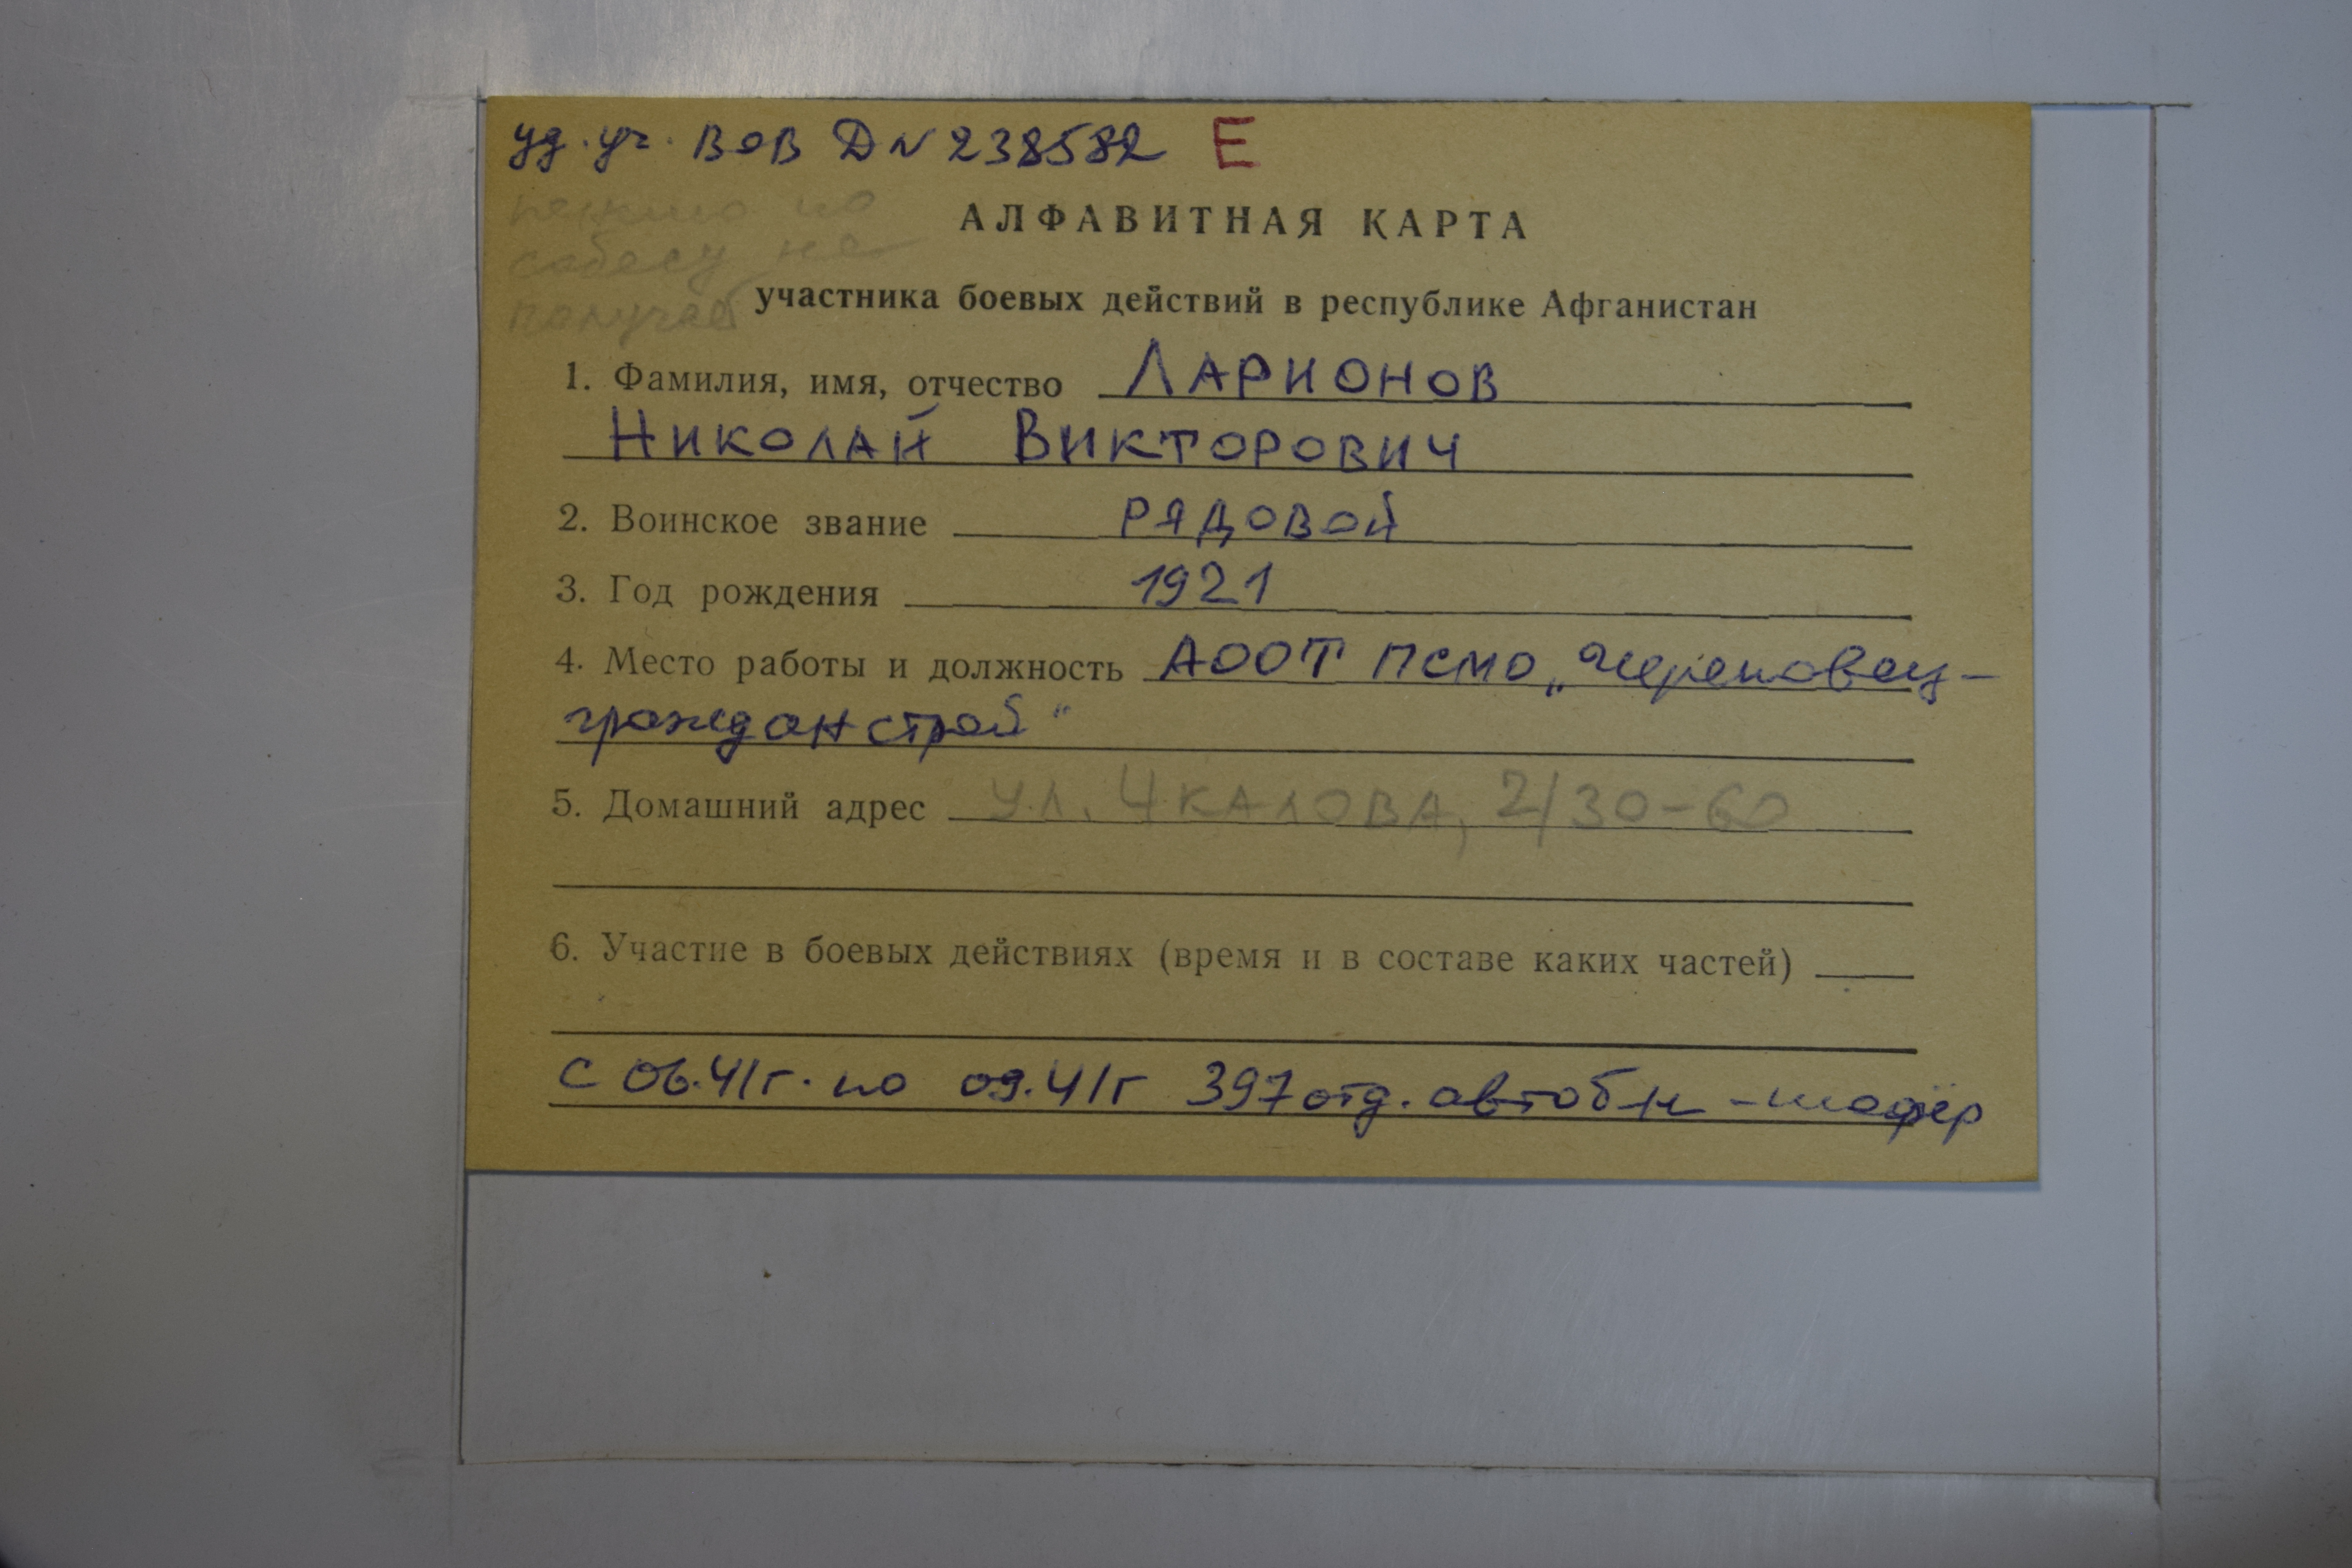 уд. уч. ВОВ Д N 238582 Е
пенсию по
собесу не
получает
АЛФАВИТНАЯ КАРТА
участника боевых действий в республике Афганистан
1. Фамилия, имя, отчество ЛАРИОНОВ
НИКОЛАЙ ВИКТОРОВИЧ
2. Воинское звание РЯДОВОЙ
3. Год рождения 1921
4. Место работы и должность АООТ ПСМО „Череповец-
гражданстрой"
5. Домашний адрес УЛ. ЧКАЛОВА, 2/30-60
6. Участие в боевых действиях (время и в составе каких частей)
с 06.41г. по 09.41г 397 отд. автоб-н - шофёр